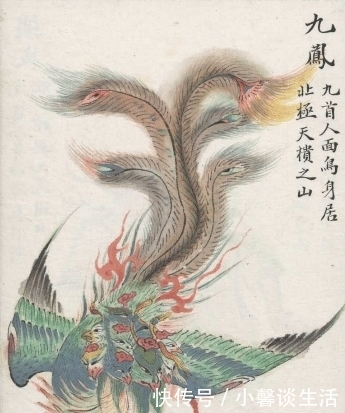 九鳳
九首人面鳥身居
北極天樻之山
快传号/小馨谈生活